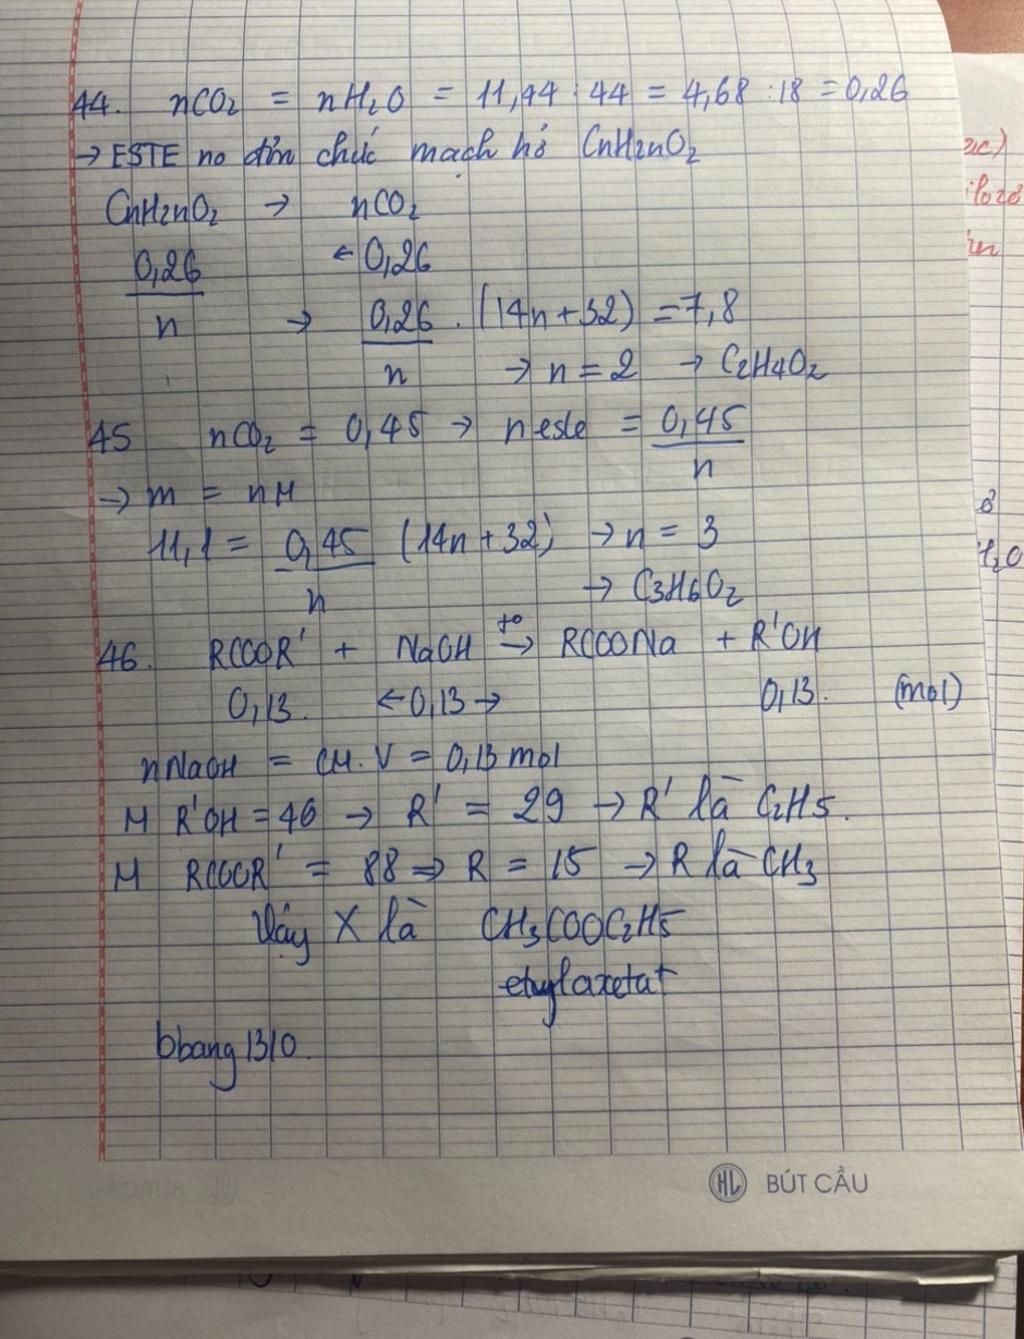 44. nCO2 = nH2O = 11,44 : 44 = 4,68 : 18 = 0,26
→ ESTE no đơn chức mạch hở CnH2nO2
CnH2nO2 → nCO2
0,26/n ← 0,26
→ 0,26/n . (14n+32) = 7,8
→ n = 2 → C2H4O2
45 nCO2 = 0,45 → n este = 0,45/n
→ m = nM
11,1 = 0,45/n (14n+32) → n = 3
→ C3H6O2
46. RCOOR' + NaOH t° → RCOONa + R'OH
0,13. ← 0,13 → 0,13. (mol)
nNaOH = CM.V = 0,13 mol
M R'OH = 46 → R' = 29 → R' là C2H5.
M RCOOR' = 88 → R = 15 → R là CH3
Vậy X là CH3COOC2H5
etylaxetat
bbang 1310.
HL BÚT CẦU
ac)
ở
H2O